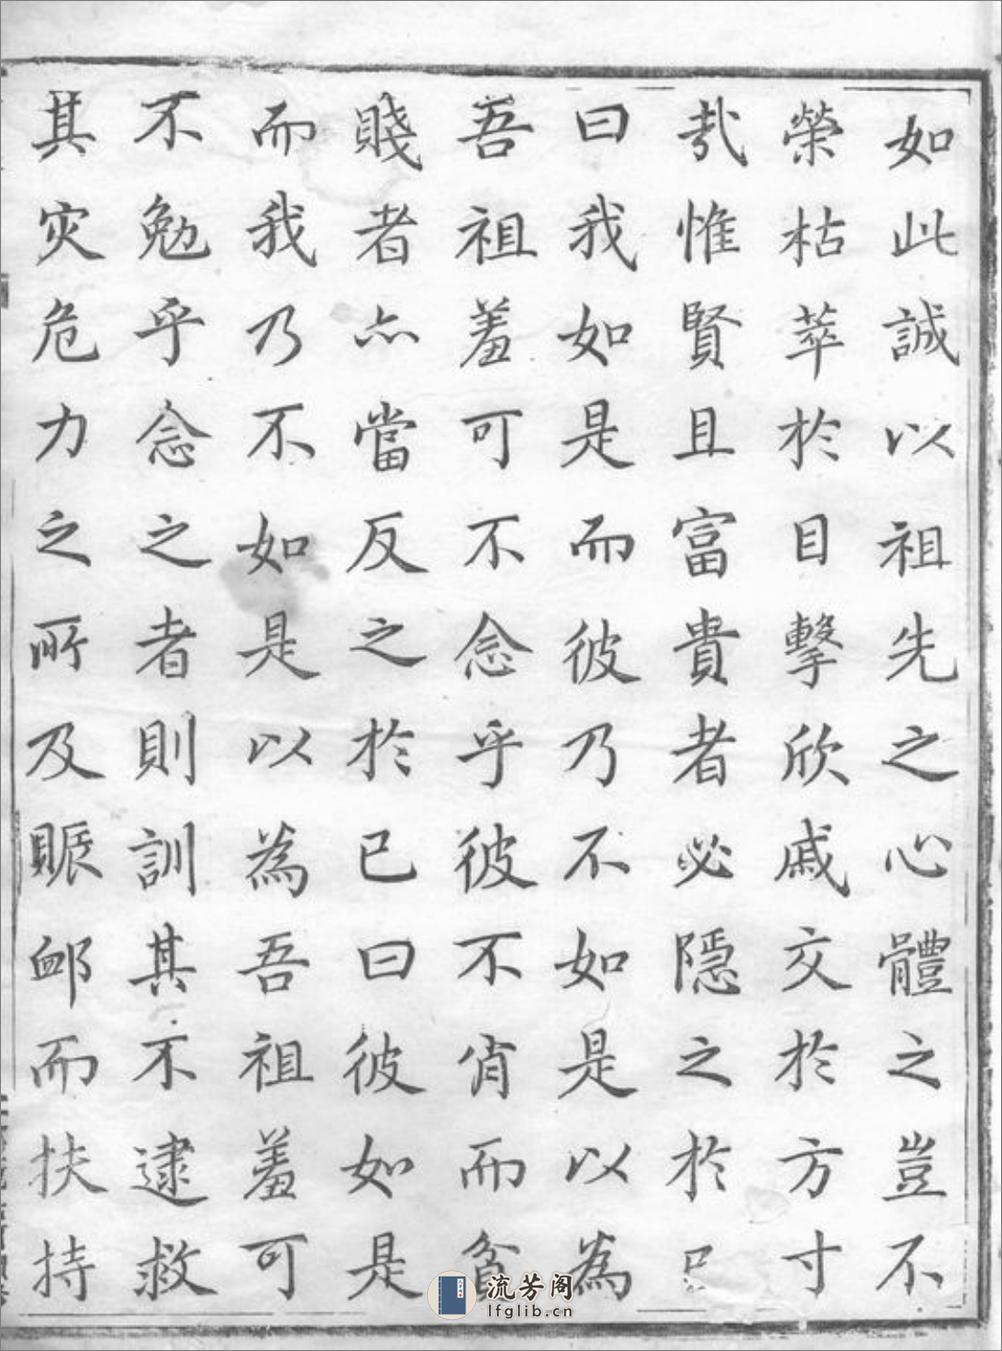 如此誠以祖先之心體之豈不
榮枯萃於目擊欣戚交於方寸
㢤惟賢且富貴者必隱之於己
曰我如是而彼乃不如是以為
吾祖羞可不念乎彼不肖而貧
賤者亦當反之於已曰彼如是
而我乃不如是以為吾祖羞可
不勉乎念之者則訓其不逮救
其灾危力之所及賑卹而扶持
流芳阁
lfglib.cn